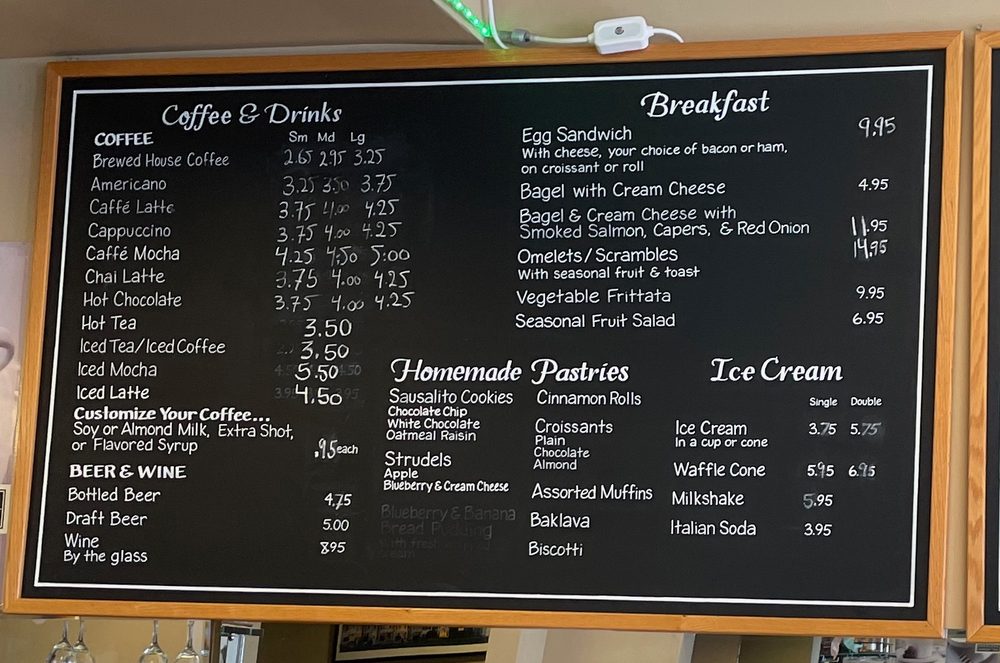 Coffee & Drinks
COFFEE Sm Md Lg
Brewed House Coffee 2.65 2.95 3.25
Americano 3.25 3.50 3.75
Caffé Latte 3.75 4.00 4.25
Cappuccino 3.75 4.00 4.25
Caffé Mocha 4.25 4.50 5.00
Chai Latte 3.75 4.00 4.25
Hot Chocolate 3.75 4.00 4.25
Hot Tea 3.50
Iced Tea/Iced Coffee 3.50
Iced Mocha 5.50
Iced Latte 4.50
Customize Your Coffee...
Soy or Almond Milk, Extra Shot,
or Flavored Syrup .95 each
BEER & WINE
Bottled Beer 4.75
Draft Beer 5.00
Wine 8.95
By the glass
Breakfast
Egg Sandwich 9.95
With cheese, your choice of bacon or ham,
on croissant or roll
Bagel with Cream Cheese 4.95
Bagel & Cream Cheese with
Smoked Salmon, Capers, & Red Onion 11.95
Omelets/Scrambles 14.95
With seasonal fruit & toast
Vegetable Frittata 9.95
Seasonal Fruit Salad 6.95
Homemade Pastries
Sausalito Cookies
Chocolate Chip
White Chocolate
Oatmeal Raisin
Strudels
Apple
Blueberry & Cream Cheese
Blueberry & Banana
Bread Pudding
Cinnamon Rolls
Croissants
Plain
Chocolate
Almond
Assorted Muffins
Baklava
Biscotti
Ice Cream
Single Double
Ice Cream 3.75 5.75
In a cup or cone
Waffle Cone 5.95 6.95
Milkshake 5.95
Italian Soda 3.95